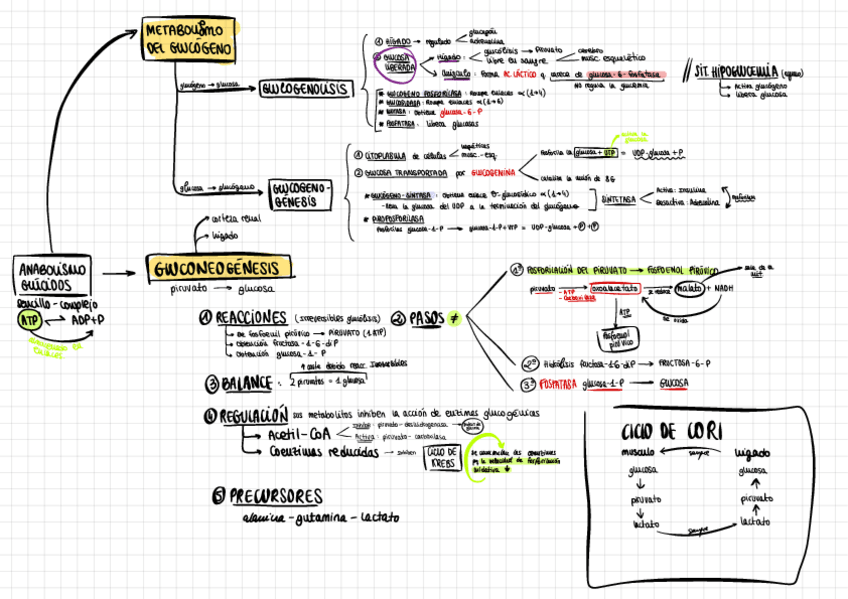 METABOLISMO
DEL GLUCÓGENO
glucógeno → glucosa
GLUCOGENOLISIS
① HÍGADO → regulado
glucagón
Adrenalina
② GLUCOSA
LIBERADA
HÍGADO:
glucólisis → Piruvato
libre en sangre
cerebro
musc. esquelético
músculo: forma AC LÁCTICO y carece de glucosa-6-fosfatasa
NO regula la glucemia
* GLUCÓGENO FOSFORILASA: Rompe enlaces α(1→4)
Rompe enlaces α(1→6)
MUTASA: Obtiene glucosa-6-P
* FOSFATASA: libera glucosas
SIT. HIPOGLUCEMIA
→ Activa glucógeno
→ libera glucosa
glucosa → glucógeno
GLUCOGENO-
GÉNESIS
① CITOPLASMA de células
hepáticas
musc. esq.
② GLUCOSA TRANSPORTADA por GLUCOGENINA
fosforila la glucosa + UTP = UDP-glucosa + P
cataliza la unión de 8G
* GLUCÓGENO-SINTASA: obtiene enlace O-glucosídico α(1→4)
-une la glucosa del UDP a la terminación del glucógeno
SINTETASA
Activa: Insulina
Desactiva: Adrenalina
glucosa-1-P → glucosa-1-P+UTP = UDP-glucosa + P + P
corteza renal
hígado
ANABOLISMO
GLÚCIDOS
sencillo-complejo
ATP → ADP+P
GLUCONEOGÉNESIS
piruvato → glucosa
① REACCIONES (irreversibles glucólisis)
→ De fosfoenol pirúvico → PIRUVATO (1 ATP)
→ Obtención fructosa-1-6-diP
→ Obtención glucosa-1-P
② PASOS ≠
1º FOSFORILACIÓN DEL PIRUVATO → FOSFOENOL PIRÚVICO
sale de la mit
piruvato → oxalacetato → se reduce malato + NADH
- ATP
se oxida
ATP
fosfoenol
pirúvico
2º Hidrólisis fructosa-1-6-diP → FRUCTOSA-6-P
3º FOSFATASA glucosa-1-P → GLUCOSA
↑ coste debido reacc. Irreversibles
③ BALANCE: 2 piruvatos = 1 glucosa
④ REGULACIÓN sus metabolitos inhiben la acción de enzimas glucogénicas
→ Acetil-CoA
Inhibe: piruvato-deshidrogenasa
Activa: piruvato-carboxilasa
→ Coenzimas reducidas → inhiben CICLO DE
KREBS
se la velocidad de fosforilación
oxidativa ↓
⑤ PRECURSORES
alanina-glutamina-lactato
CICLO DE CORI
musculo ← sangre hígado
glucosa glucosa
↓ ↑
piruvato piruvato
↓ ↑
lactato sangre → lactato